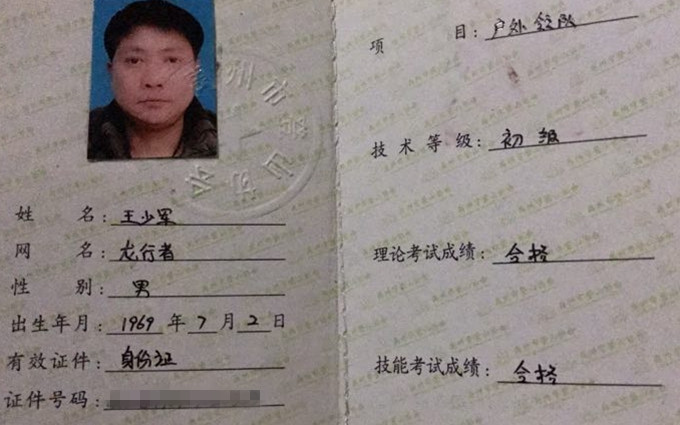 姓 名：王少军
网 名：龙行者
性 别：男
出生年月：1969 年 7 月 2 日
有效证件：身份证
证件号码：
项 目：户外领队
技术等级：初级
理论考试成绩：合格
技能考试成绩：合格